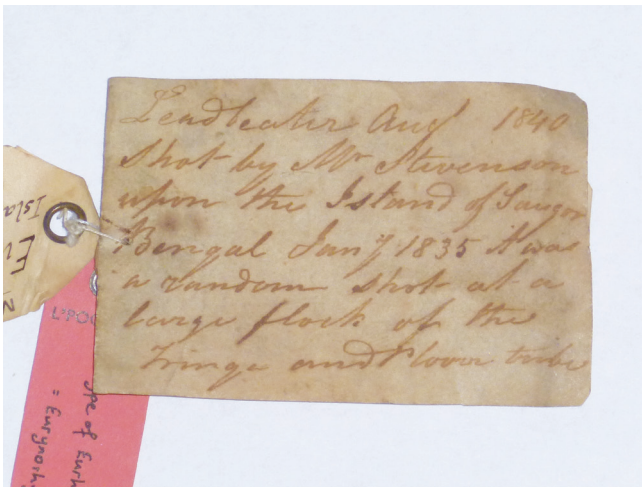 Leadbeater Aug 1840
Shot by Mr Stevenson
upon the Island of Saugor
Bengal Jany 1835 it was
a random shot at a
large flock of the
Tringa and Plover tribe
Isla
Eu
ype of Eurh
= Eurynorh